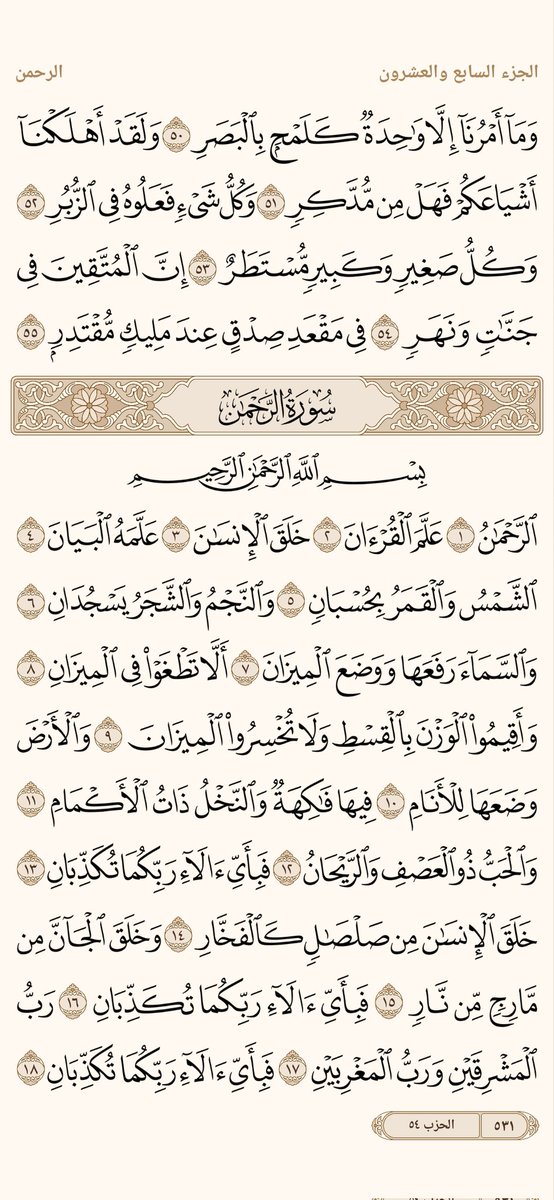 الجزء السابع والعشرون
الرحمن
وَمَآ أَمْرُنَآ إِلَّا وَٰحِدَةٌ كَلَمْحٍۭ بِٱلْبَصَرِ ٥٠ وَلَقَدْ أَهْلَكْنَآ
أَشْيَاعَكُمْ فَهَلْ مِن مُّدَّكِرٍ ٥١ وَكُلُّ شَىْءٍ فَعَلُوهُ فِى ٱلزُّبُرِ ٥٢
وَكُلُّ صَغِيرٍ وَكَبِيرٍ مُّسْتَطَرٌ ٥٣ إِنَّ ٱلْمُتَّقِينَ فِى
جَنَّٰتٍ وَنَهَرٍ ٥٤ فِى مَقْعَدِ صِدْقٍ عِندَ مَلِيكٍ مُّقْتَدِرٍۭ ٥٥
سُورَةُ الرَّحْمَٰن
بِسْمِ ٱللَّهِ ٱلرَّحْمَٰنِ ٱلرَّحِيمِ
ٱلرَّحْمَٰنُ ١ عَلَّمَ ٱلْقُرْءَانَ ٢ خَلَقَ ٱلْإِنسَٰنَ ٣ عَلَّمَهُ ٱلْبَيَانَ ٤
ٱلشَّمْسُ وَٱلْقَمَرُ بِحُسْبَانٍ ٥ وَٱلنَّجْمُ وَٱلشَّجَرُ يَسْجُدَانِ ٦
وَٱلسَّمَآءَ رَفَعَهَا وَوَضَعَ ٱلْمِيزَانَ ٧ أَلَّا تَطْغَوْا۟ فِى ٱلْمِيزَانِ ٨
وَأَقِيمُوا۟ ٱلْوَزْنَ بِٱلْقِسْطِ وَلَا تُخْسِرُوا۟ ٱلْمِيزَانَ ٩ وَٱلْأَرْضَ
وَضَعَهَا لِلْأَنَامِ ١٠ فِيهَا فَٰكِهَةٌ وَٱلنَّخْلُ ذَاتُ ٱلْأَكْمَامِ ١١
وَٱلْحَبُّ ذُو ٱلْعَصْفِ وَٱلرَّيْحَانُ ١٢ فَبِأَىِّ ءَالَآءِ رَبِّكُمَا تُكَذِّبَانِ ١٣
خَلَقَ ٱلْإِنسَٰنَ مِن صَلْصَٰلٍ كَٱلْفَخَّارِ ١٤ وَخَلَقَ ٱلْجَآنَّ مِن
مَّارِجٍ مِّن نَّارٍ ١٥ فَبِأَىِّ ءَالَآءِ رَبِّكُمَا تُكَذِّبَانِ ١٦ رَبُّ
ٱلْمَشْرِقَيْنِ وَرَبُّ ٱلْمَغْرِبَيْنِ ١٧ فَبِأَىِّ ءَالَآءِ رَبِّكُمَا تُكَذِّبَانِ ١٨
٥٣١
الحزب ٥٤